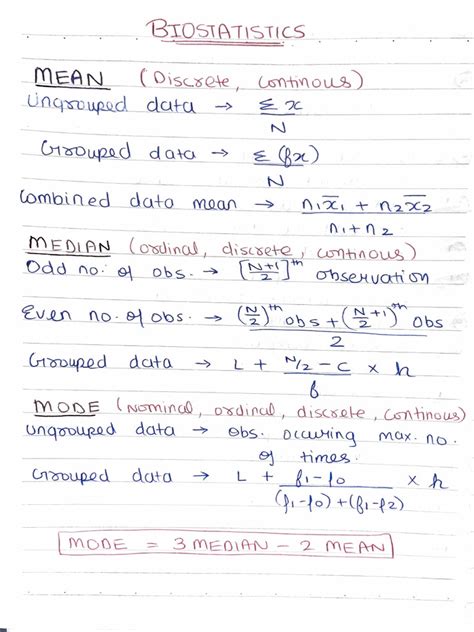 BIOSTATISTICS
MEAN (Discrete, continous)
Ungrouped data → Σx / N
Grouped data → Σ(fx) / N
Combined data mean → (n₁x̅₁ + n₂x̅₂) / (n₁ + n₂)
MEDIAN (ordinal, discrete, continous)
Odd no. of obs. → [(N+1)/2]ᵗʰ observation
Even no. of obs. → ((N/2)ᵗʰ obs + (N/2 + 1)ᵗʰ obs) / 2
Grouped data → L + (N/2 − C) / f × h
MODE (Nominal, ordinal, discrete, continous)
Ungrouped data → obs. occuring max. no.
of times.
Grouped data → L + (f₁ − f₀) / ((f₁ − f₀) + (f₁ − f₂)) × h
MODE = 3 MEDIAN − 2 MEAN